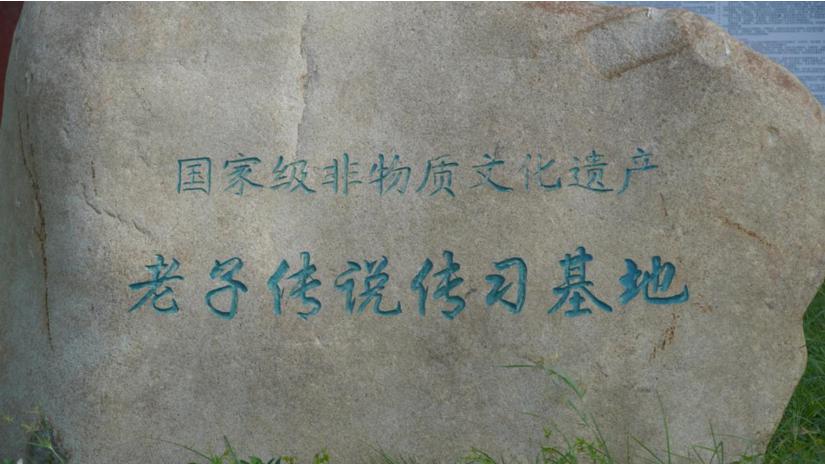 国家级非物质文化遗产
老子传说传习基地